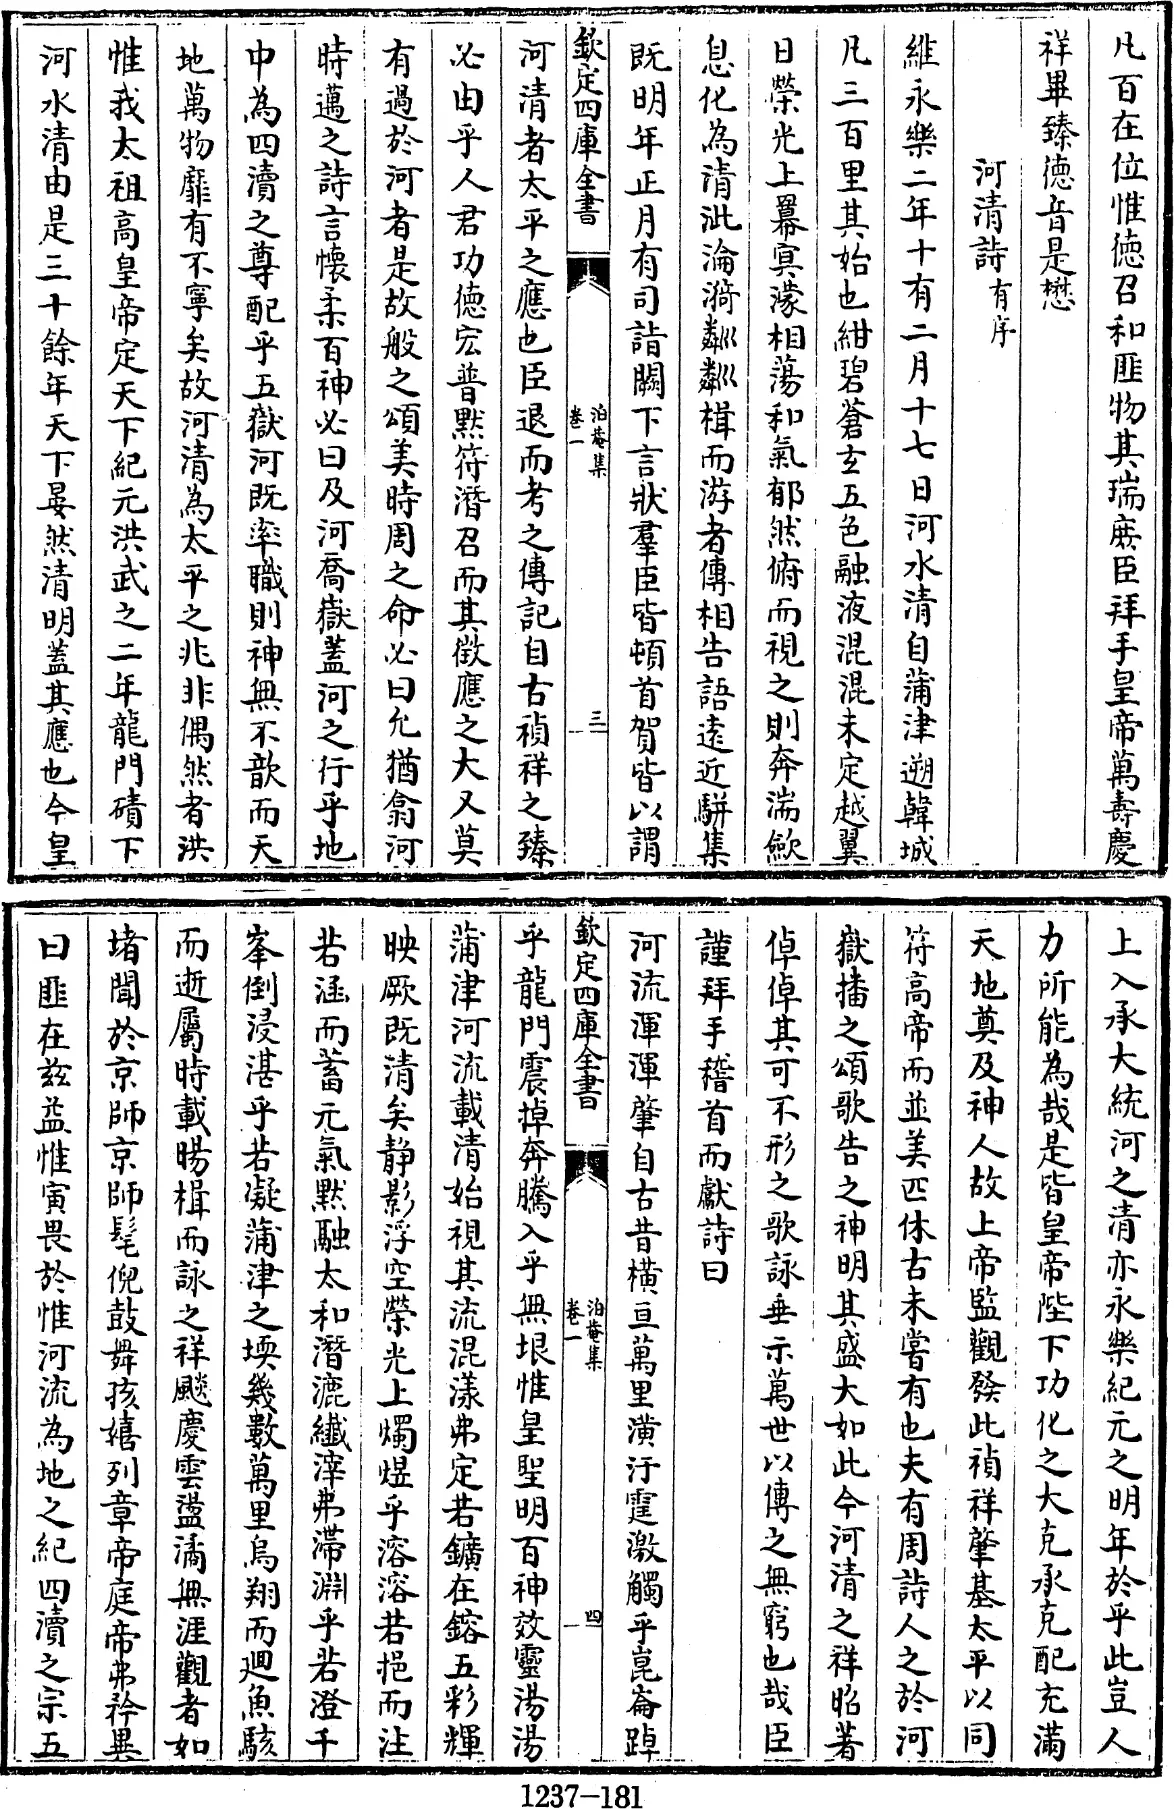 凡百在位惟德召和匪物其瑞庶臣拜手皇帝萬壽慶
祥畢臻德音是懋
河清詩有序
維永樂二年十有二月十七日河水清自蒲津遡韓城
凡三百里其始也紺碧蒼玄五色融液混混未定越翼
日榮光上羃冥濛相蕩和氣郁然俯而視之則奔湍歛
息化為清泚淪漪粼粼楫而游者傳相告語遠近駢集
既明年正月有司詣闕下言狀羣臣皆頓首賀皆以謂
欽定四庫全書
泊菴集
卷一
三
河清者太平之應也臣退而考之傳記自古禎祥之臻
必由乎人君功德宏普黙符潛召而其徴應之大又莫
有過於河者是故般之頌美時周之命必曰允猶翕河
時邁之詩言懷柔百神必曰及河喬嶽蓋河之行乎地
中為四瀆之尊配乎五嶽河既率職則神無不歆而天
地萬物靡有不寧矣故河清為太平之兆非偶然者洪
惟我太祖高皇帝定天下紀元洪武之二年龍門磧下
河水清由是三十餘年天下晏然清明蓋其應也今皇
上入承大統河之清亦永樂紀元之明年於乎此豈人
力所能為哉是皆皇帝陛下功化之大克承克配充滿
天地奠及神人故上帝監觀發此禎祥肇基太平以同
符高帝而並美匹休古未嘗有也夫有周詩人之於河
嶽播之頌歌告之神明其盛大如此今河清之祥昭著
倬倬其可不形之歌詠垂示萬世以傳之無窮也哉臣
謹拜手稽首而獻詩曰
河流渾渾肇自古昔橫亘萬里潢汙霆激觸乎崑崙踔
欽定四庫全書
泊菴集
卷一
四
乎龍門震掉奔騰入乎無垠惟皇聖明百神效靈湯湯
蒲津河流載清始視其流混漾弗定若鑛在鎔五彩輝
映厥既清矣静影浮空榮光上燭煜乎溶溶若挹而注
若涵而蓄元氣黙融太和潛漉纎滓弗滯淵乎若澄千
峯倒浸湛乎若凝蒲津之堧幾數萬里鳥翔而廻魚駭
而逝屬時載暘楫而詠之祥颷慶雲盪潏無涯觀者如
堵聞於京師京師髦倪鼓舞孩嬉列章帝庭帝弗矜異
曰匪在兹益惟寅畏於惟河流為地之紀四瀆之宗五
1237-181